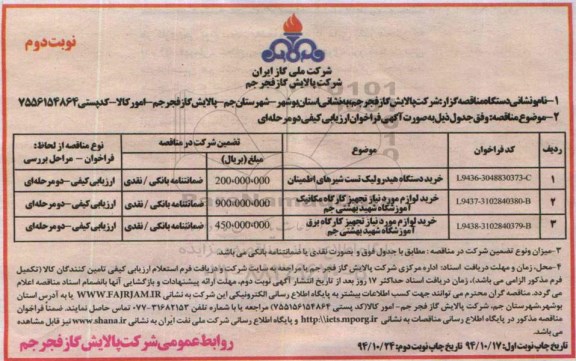 نوبت دوم
شرکت ملی گاز ایران
شرکت پالایش گاز فجر جم
۱- نام و نشانی دستگاه مناقصه گزار: شرکت پالایش گاز فجر جم به نشانی استان بوشهر - شهرستان جم - پالایش گاز فجر جم - امور کالا - کد پستی ۷۵۵۶۱۵۴۸۶۴
۲- موضوع مناقصه: وفق جدول ذیل به صورت آگهی فراخوان ارزیابی کیفی دو مرحله ای
ردیف | کد فراخوان | موضوع | تضمین شرکت در مناقصه | نوع مناقصه از لحاظ: فراخوان - مراحل بررسی
مبلغ (ریال)
۱ | L9436-3048830373-C | خرید دستگاه هیدرولیک تست شیرهای اطمینان | 200-000-000 | ضمانتنامه بانکی / نقدی | ارزیابی کیفی - دو مرحله ای
۲ | L9437-3102840380-B | خرید لوازم مورد نیاز تجهیز کارگاه مکانیک آموزشگاه شهید بهشتی جم | 900-000-000 | ضمانتنامه بانکی / نقدی | ارزیابی کیفی - دو مرحله ای
۳ | L9438-3102840379-B | خرید لوازم مورد نیاز تجهیز کارگاه برق آموزشگاه شهید بهشتی جم | 450-000-000 | ضمانتنامه بانکی / نقدی | ارزیابی کیفی - دو مرحله ای
۳- میزان و نوع تضمین شرکت در مناقصه: مطابق با جدول فوق و بصورت نقدی یا ضمانتنامه بانکی می باشد.
۴- محل، زمان و مهلت دریافت اسناد: اداره مرکزی شرکت پالایش گاز فجر جم با مراجعه به سایت شرکت و دریافت فرم استعلام ارزیابی کیفی تامین کنندگان کالا (تکمیل
فرم مذکور الزامی می باشد)، زمان دریافت اسناد حداکثر ۱۷ روز بعد از تاریخ انتشار آگهی نوبت دوم. مهلت ارائه پیشنهادات و بازگشایی آنها بانضمام اسناد مناقصه اعلام
می گردد. مناقصه گران محترم می توانند جهت کسب اطلاعات بیشتر به پایگاه اطلاع رسانی الکترونیکی این شرکت به نشانی WWW.FAJRJAM.IR یا به آدرس استان
بوشهر شهرستان جم، شرکت پالایش گاز فجر جم - امور کالا (کد پستی ۷۵۵۶۱۵۴۸۶۴) مراجعه یا با شماره تلفن ۳۱۶۸۲۱۵۳-۰۷۷ تماس حاصل نمایند. ضمناً فراخوان
مناقصه مذکور در پایگاه اطلاع رسانی مناقصات به نشانی http:\\iets.mporg.ir و پایگاه اطلاع رسانی شرکت ملی نفت ایران به نشانی www.shana.ir نیز قابل مشاهده
می باشد.
تاریخ چاپ نوبت اول: ۹۴/۱۰/۱۷ تاریخ چاپ نوبت دوم: ۹۴/۱۰/۲۴
روابط عمومی شرکت پالایش گاز فجر جم